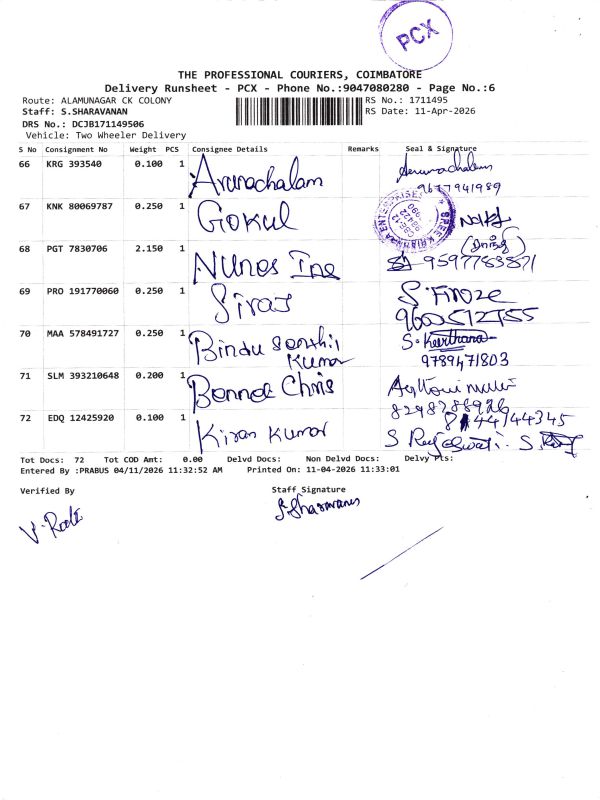 PCX
THE PROFESSIONAL COURIERS, COIMBATORE
Delivery Runsheet - PCX - Phone No.:9047080280 - Page No.:6
Route: ALAMUNAGAR CK COLONY RS No.: 1711495
Staff: S.SHARAVANAN RS Date: 11-Apr-2026
DRS No.: DCJB171149506
Vehicle: Two Wheeler Delivery
S No Consignment No Weight PCS Consignee Details Remarks Seal & Signature
66 KRG 393540 0.100 1 Arunachalam Arunachalam
9677941989
67 KNK 80069787 0.250 1 Gokul
68 PGT 7830706 2.150 1 Nunes Ine 9597783871
69 PRO 191770060 0.250 1 Siraj S.Firoze
9600512755
70 MAA 578491727 0.250 1 Bindu Senthil Kumar S.Keerthana
9789471803
71 SLM 393210648 0.200 1 Benned Chris
72 EDQ 12425920 0.100 1 Kiran Kumar S Rajeswari.
Tot Docs: 72 Tot COD Amt: 0.00 Delvd Docs: Non Delvd Docs: Delvy Pts:
Entered By :PRABUS 04/11/2026 11:32:52 AM Printed On: 11-04-2026 11:33:01
Verified By Staff Signature
S.Sharavanan